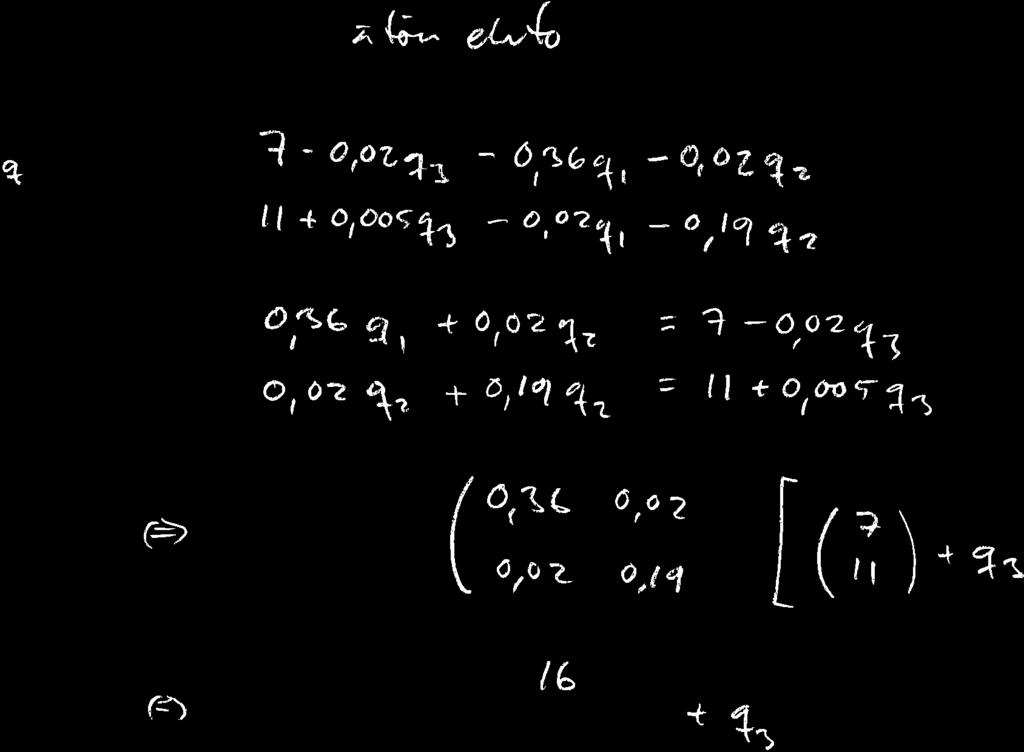 ehto
q 7 - 0,02q₃ - 0,36q₁ - 0,02q₂
11 + 0,005q₃ - 0,02q₁ - 0,19q₂
0,36 q₁ + 0,02q₂ = 7 - 0,02q₃
0,02 q₂ + 0,19 q₂ = 11 + 0,005 q₃
⇔ ( 0,36 0,02 [ ( 7 ) + q₃
0,02 0,19 11
16
(=) + q₃